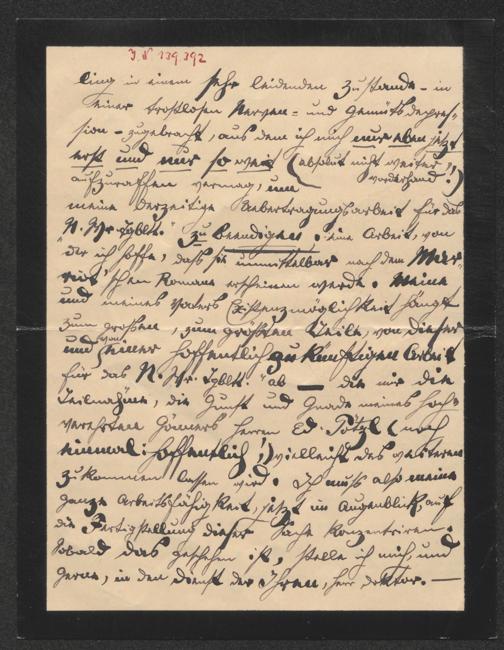 I. N. 139 392
ling in einem sehr leidenden Zustande - in
einer trostlosen Nerven- und Gemütsdepres-
sion - zugebracht, aus dem ich mich nur eben jetzt
erst und nur so weit (absolut nicht weiter
vorderhand!)
aufzuraffen vermag, um
meine derzeitige Uebertragungsarbeit für das
"N. Wr. Tgblt." zu beendigen: eine Arbeit, von
der ich hoffe, dass sie unmittelbar nach dem
Romane erscheinen werde. Meine
und meines Vaters Existenzmöglichkeit hängt
zum großen, zum größten Teile, von dieser
und von einer hoffentlich zukünftigen Arbeit
für das "N. Wr. Tgblt." ab — die mir die
Teilnahme, die Gunst und Gnade meines hoch-
verehrten Gönners Herrn Ed. Pötzl (noch
einmal: hoffentlich!) vielleicht des weiteren
zukommen lassen wird. Ich muss also meine
ganze Arbeitsfähigkeit, jetzt im Augenblick, auf
die Fertigstellung dieser Sache konzentriren.
Sobald das geschehen ist, stelle ich mich, und
gerne, in den Dienst der Ihren, Herr Doktor. —